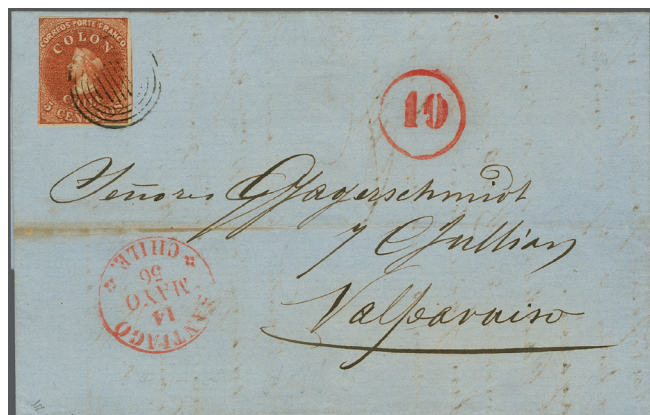 CORREOS PORTE FRANCO
COLON
CHILE
5 CENTAVOS
10
Señores Jagerschmidt
y Jullian
Valparaiso
SANTIAGO
14
MAYO
56
CHILE